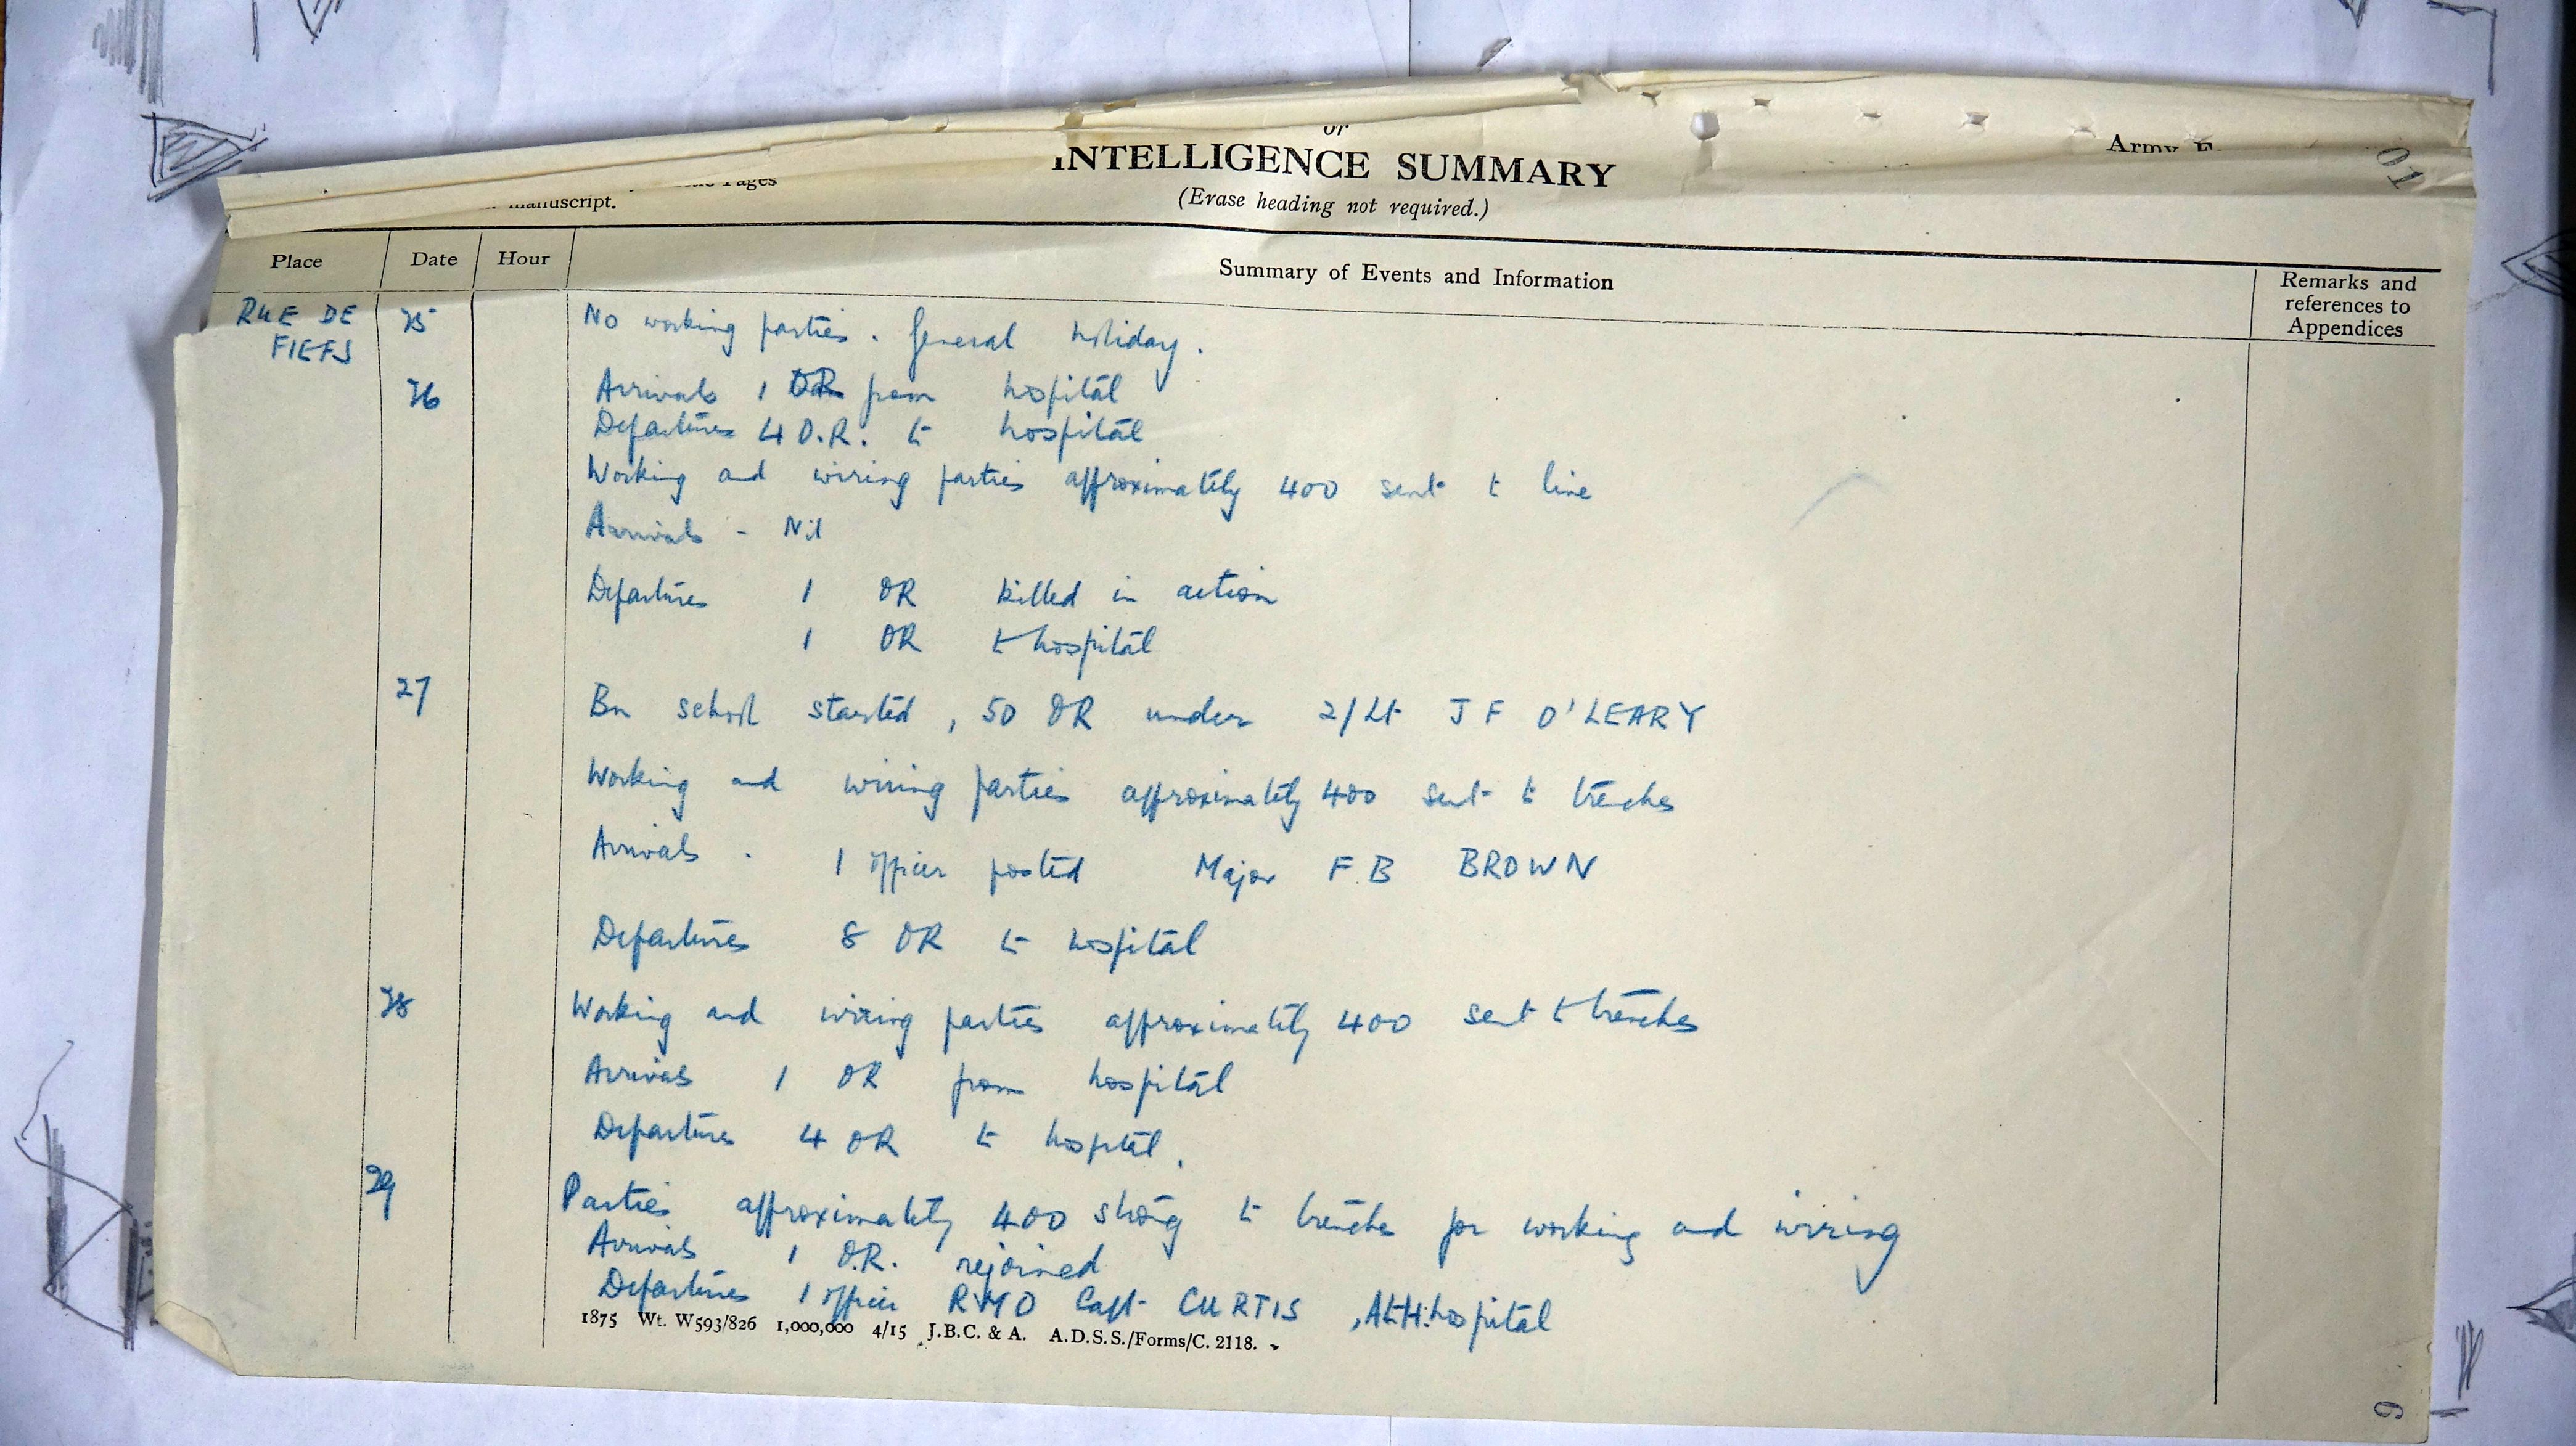 or
INTELLIGENCE SUMMARY
Army F
01
Pages
manuscript.
(Erase heading not required.)
Place Date Hour Summary of Events and Information Remarks and references to Appendices
RUE DE FIEFS 25 No working parties. General holiday.
26 Arrivals 1 OR from hospital
Departures 4 O.R. to hospital
Working and wiring parties approximately 400 sent to line
Arrivals - Nil
Departures 1 OR killed in action
1 OR to hospital
27 Bn school started, 50 OR under 2/Lt J F O'LEARY
Working and wiring parties approximately 400 sent to trenches
Arrivals. 1 officer posted Major F.B BROWN
Departures 8 OR to hospital
28 Working and wiring parties approximately 400 sent to trenches
Arrivals 1 OR from hospital
Departures 4 OR to hospital.
29 Parties approximately 400 strong to trenches for working and wiring
Arrivals 1 O.R. rejoined
Departures 1 officer RMO Capt CURTIS, hospital
1875 Wt. W593/826 1,000,000 4/15 J.B.C. & A. A.D.S.S./Forms/C. 2118.
6